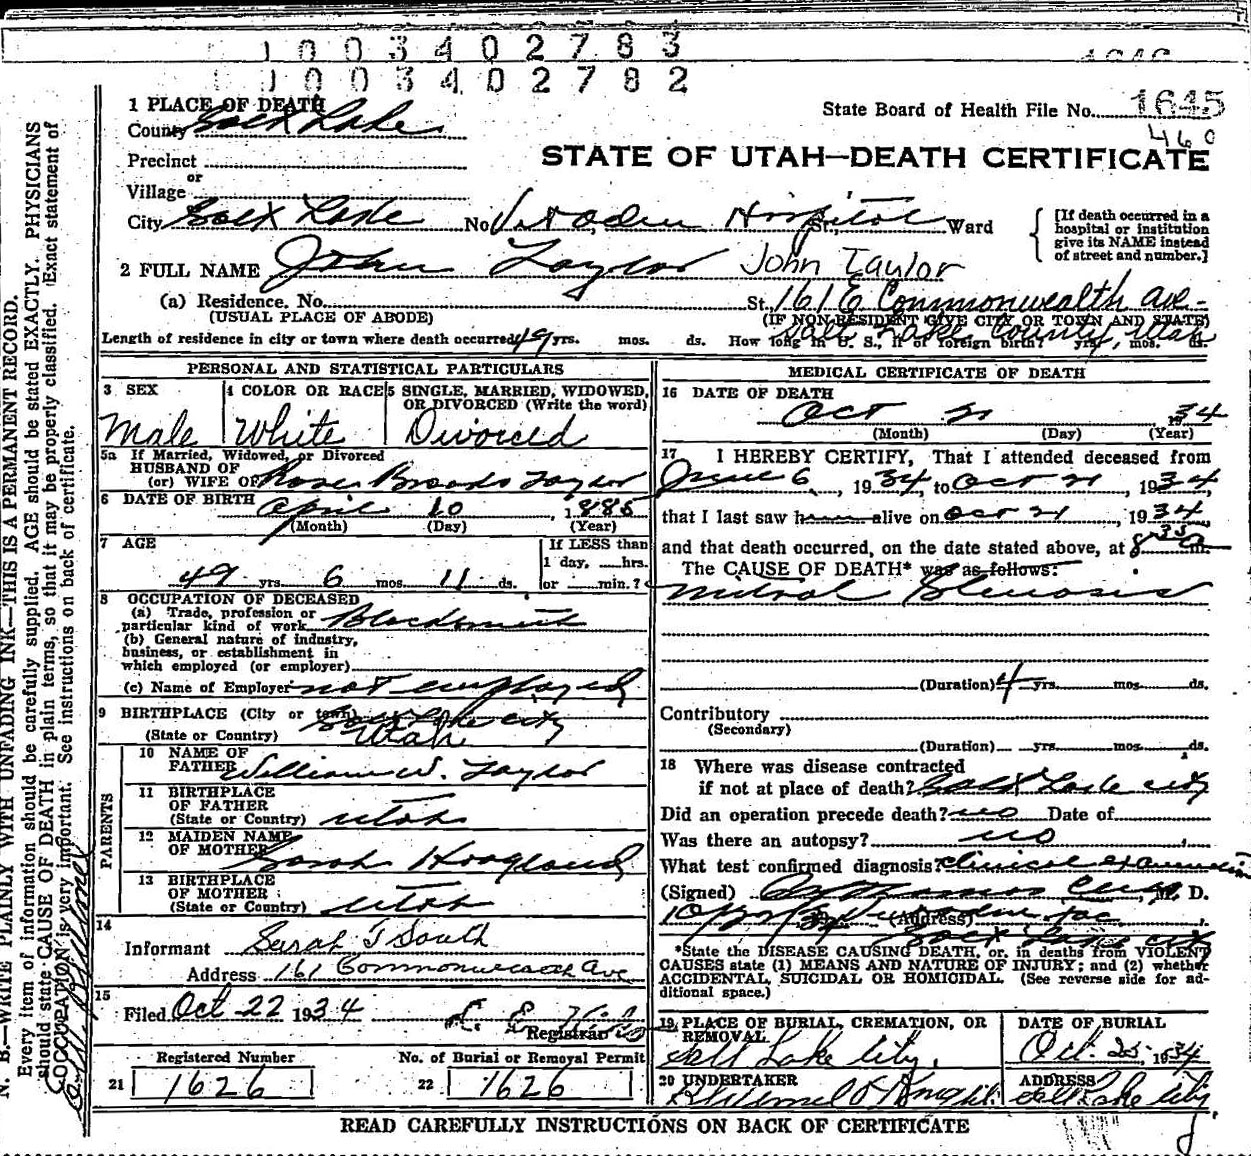 1003402783
1003402782
1 PLACE OF DEATH
County Salt Lake
State Board of Health File No. 1645
460
Precinct
or
Village
STATE OF UTAH—DEATH CERTIFICATE
City Salt Lake No. Hospital St., Ward
[If death occurred in a
hospital or institution
give its NAME instead
of street and number.]
2 FULL NAME John Taylor John Taylor
(a) Residence. No. St. 161 E Commonwealth Ave-
(USUAL PLACE OF ABODE)
(IF NON-RESIDENT GIVE CITY OR TOWN AND STATE)
Salt Lake County Utah
Length of residence in city or town where death occurred 49 yrs. mos. ds. How long in U. S., if of foreign birth? yrs. mos. ds.
PERSONAL AND STATISTICAL PARTICULARS
3 SEX
Male
4 COLOR OR RACE
White
5 SINGLE, MARRIED, WIDOWED,
OR DIVORCED (Write the word)
Divorced
5a If Married, Widowed, or Divorced
HUSBAND OF
(or) WIFE OF Rose Brooks Taylor
6 DATE OF BIRTH April 10, 1885
(Month) (Day) (Year)
7 AGE
49 yrs. 6 mos. 11 ds.
If LESS than
1 day, hrs.
or min.?
8 OCCUPATION OF DECEASED
(a) Trade, profession or
particular kind of work Blacksmith
(b) General nature of industry,
business, or establishment in
which employed (or employer)
(c) Name of Employer not employed
9 BIRTHPLACE (City or town) Salt Lake City
(State or Country) Utah
PARENTS
10 NAME OF
FATHER William W. Taylor
11 BIRTHPLACE
OF FATHER
(State or Country) Utah
12 MAIDEN NAME
OF MOTHER Sarah Hoagland
13 BIRTHPLACE
OF MOTHER
(State or Country) Utah
14
Informant Sarah T South
Address 161 Commonwealth Ave
15
Filed Oct 22 1934
Registrar
Registered Number
21 1626
No. of Burial or Removal Permit
22 1626
MEDICAL CERTIFICATE OF DEATH
16 DATE OF DEATH
Oct 21 1934
(Month) (Day) (Year)
17 I HEREBY CERTIFY, That I attended deceased from
June 6, 1934, to Oct 21, 1934,
that I last saw h alive on Oct 21, 1934
and that death occurred, on the date stated above, at 8 35 a m.
The CAUSE OF DEATH* was as follows:
Mitral Stenosis
(Duration) 4 yrs. mos. ds.
Contributory
(Secondary)
(Duration) yrs. mos. ds.
18 Where was disease contracted
if not at place of death? Salt Lake City
Did an operation precede death? no Date of
Was there an autopsy? no
What test confirmed diagnosis? clinical examination
(Signed) M. D.
(Address)
Salt Lake City
*State the DISEASE CAUSING DEATH, or, in deaths from VIOLENT
CAUSES state (1) MEANS AND NATURE OF INJURY; and (2) whether
ACCIDENTAL, SUICIDAL OR HOMICIDAL. (See reverse side for ad-
ditional space.)
19 PLACE OF BURIAL, CREMATION, OR
REMOVAL
Salt Lake City.
DATE OF BURIAL
Oct. 25, 1934
20 UNDERTAKER
ADDRESS
Salt Lake City
READ CAREFULLY INSTRUCTIONS ON BACK OF CERTIFICATE
N. B.—WRITE PLAINLY WITH UNFADING INK—THIS IS A PERMANENT RECORD.
Every item of information should be carefully supplied. AGE should be stated EXACTLY. PHYSICIANS
should state CAUSE OF DEATH in plain terms, so that it may be properly classified. Exact statement of
OCCUPATION is very important. See instructions on back of certificate.